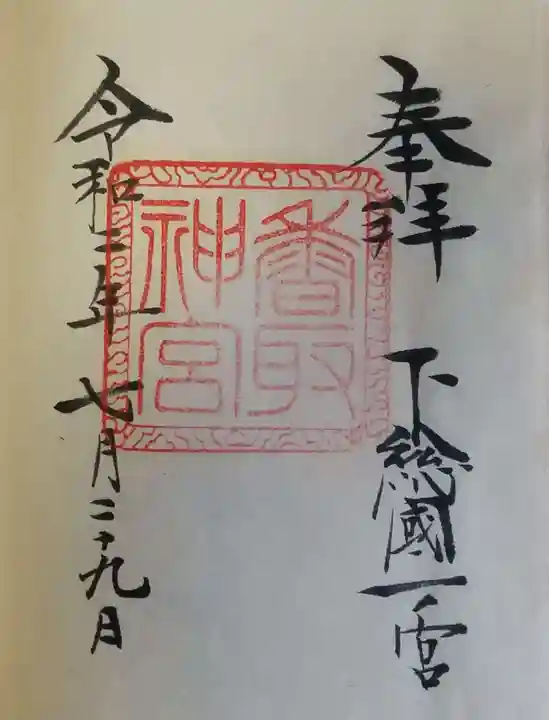 奉拝　下総國一宮
香取
神宮
令和二年七月二十九日